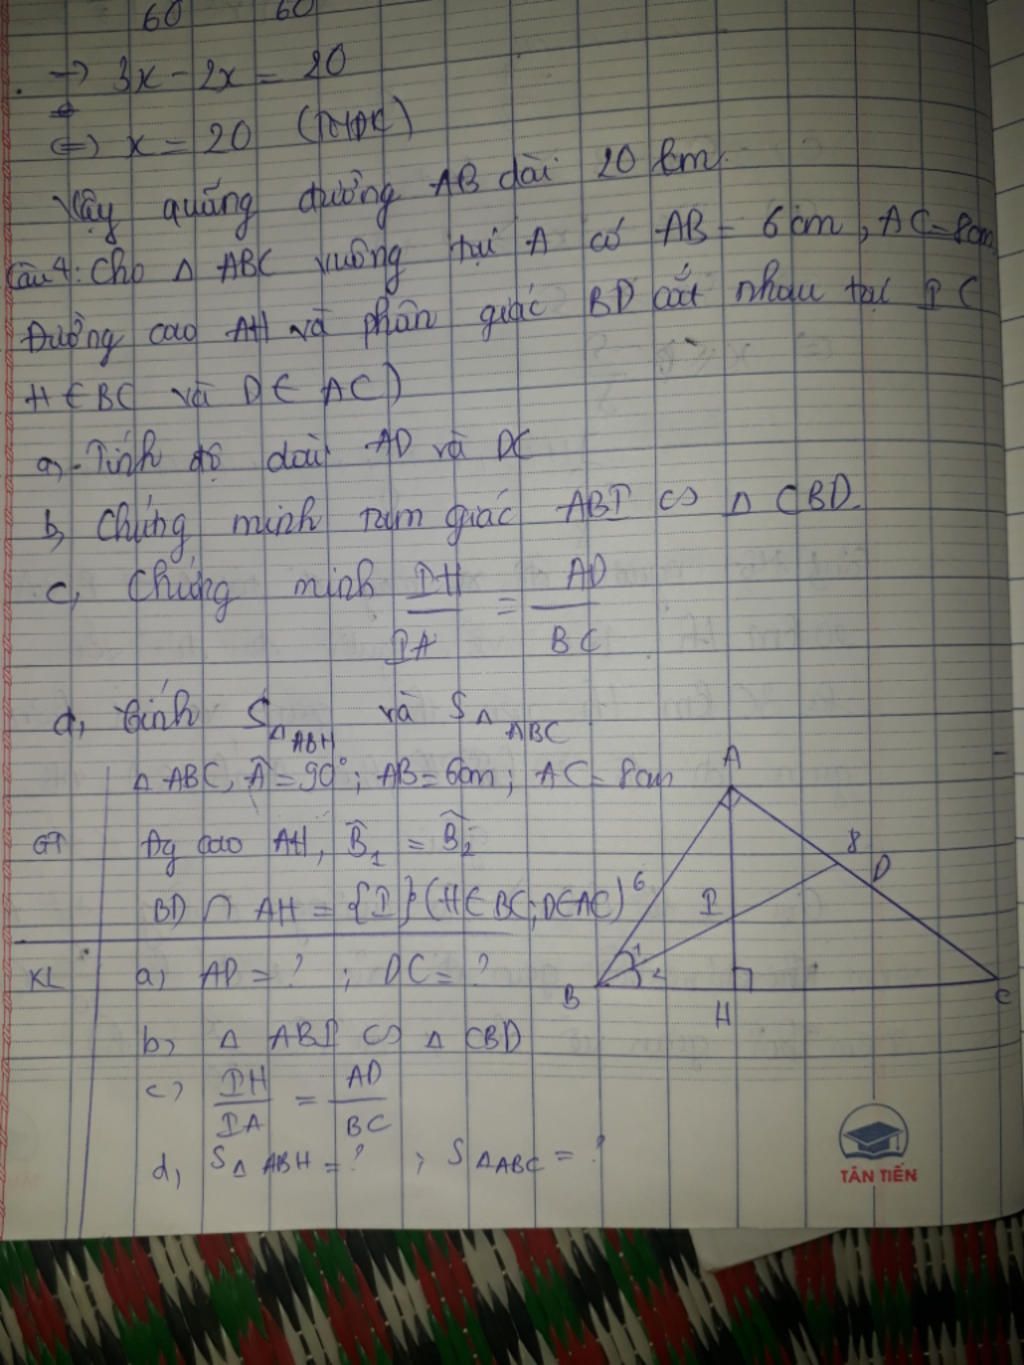 60 60
→ 3x - 2x = 20
⇔ x = 20 (TMĐK)
Vậy quãng đường AB dài 20 km.
Câu 4: Cho Δ ABC vuông tại A có AB = 6 cm, AC = 8 cm
Đường cao AH và phân giác BD cắt nhau tại I (
H ∈ BC và D ∈ AC)
a, Tính độ dài AD và DC
b, Chứng minh tam giác ABI ∽ Δ CBD.
c, Chứng minh IH/IA = AD/BC
d, tính SΔABH và SΔABC
Δ ABC, Â = 90°; AB = 6cm; AC = 8cm
GT Đg cao AH, B̂1 = B̂2
BD ∩ AH = {I} (H ∈ BC; D ∈ AC)
KL a) AD = ? ; DC = ?
b) Δ ABI ∽ Δ CBD
c) IH/IA = AD/BC
d, SΔABH = ? ; SΔABC = ?
A
8
D
6
I
1
2
B
H
C
TÂN TIẾN